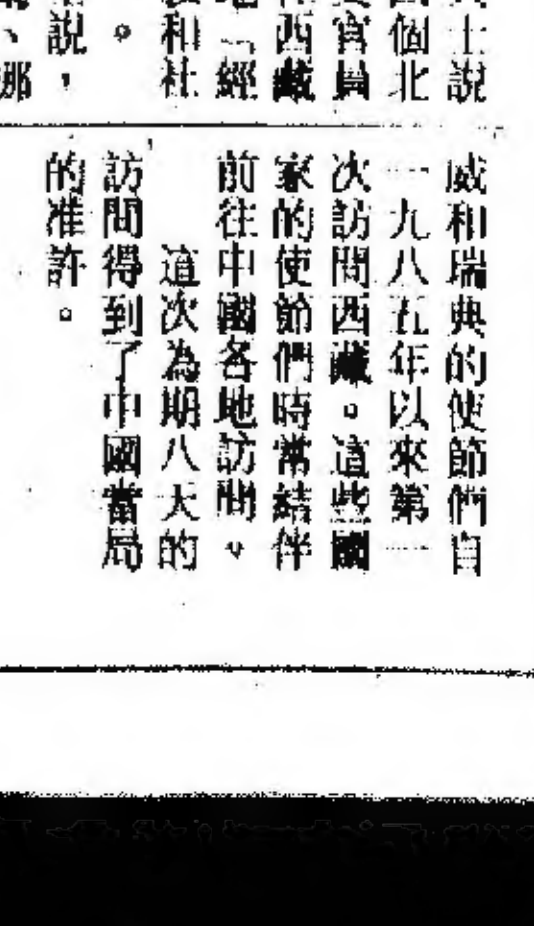 士說
個北
官員
西藏
地「經
和社
。
說，
、那
威和瑞典的使節們自
一九八五年以來第一
次訪問西藏。這些國
家的使節們時常結伴
前往中國各地訪問。
這次為期八天的
訪問得到了中國當局
的准許。